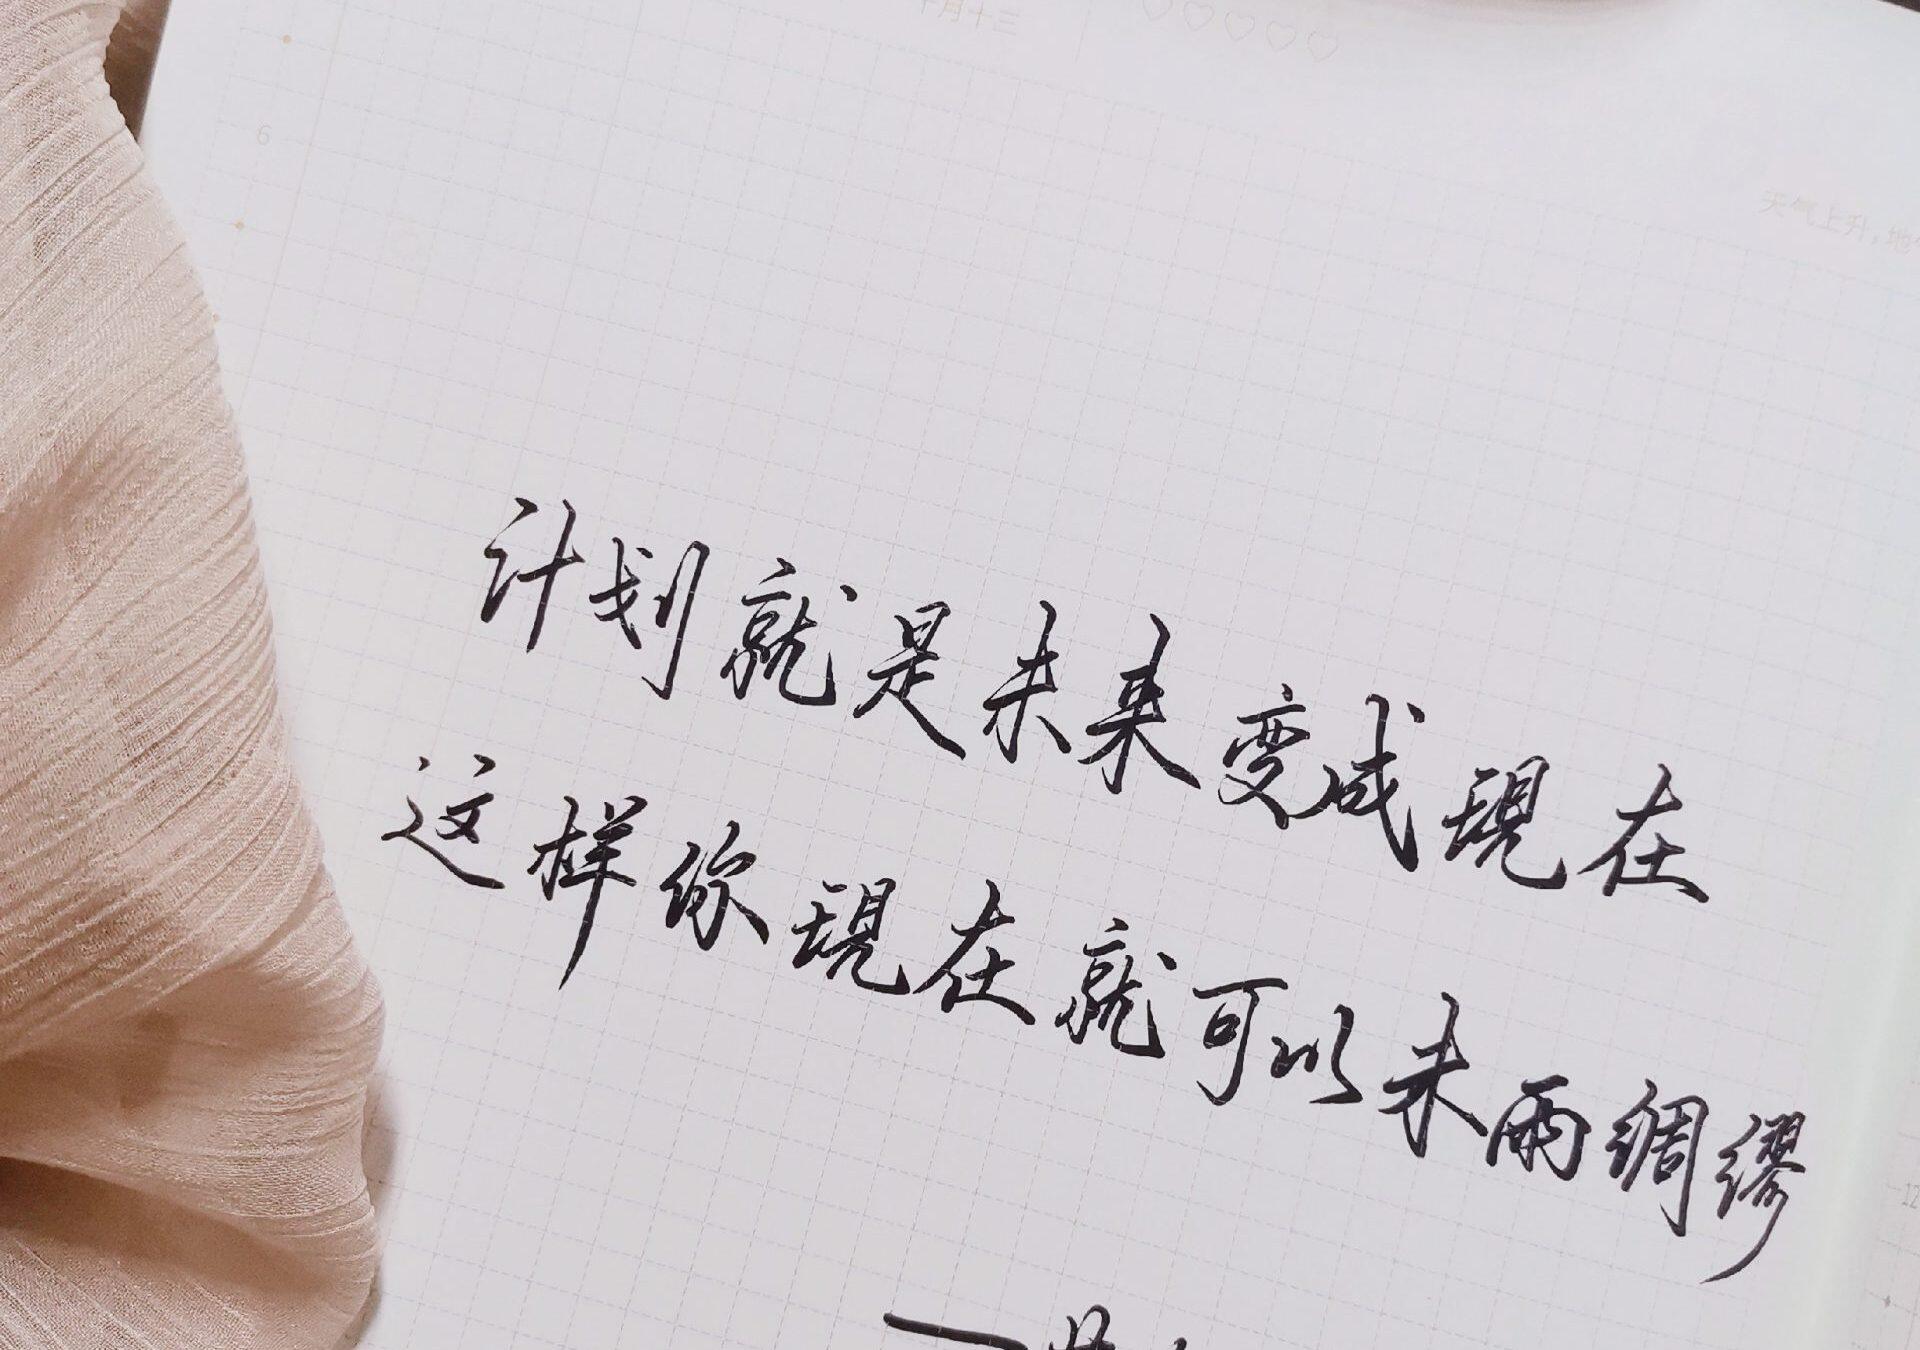 十月十三
6
天气上升,地
计划就是未来变成现在
这样你现在就可以未雨绸缪
12